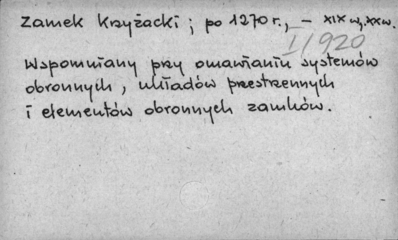 Zamek Krzyżacki; po 1270 r., – XIX w, XX w.
I/920
Wspomniany przy omawianiu systemów
obronnych, układów przestrzennych
i elementów obronnych zamków.